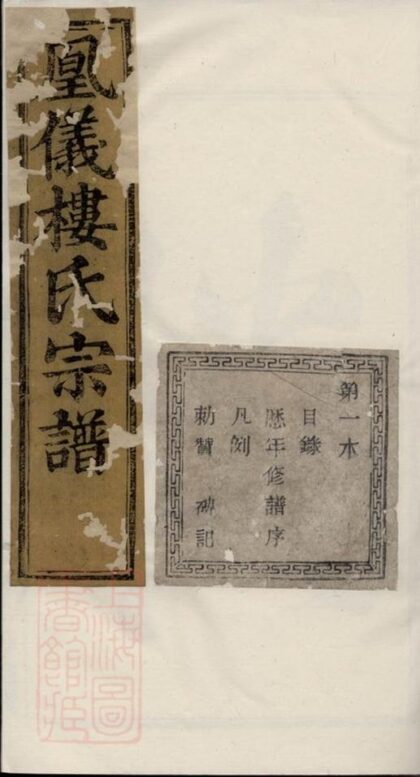 鳳儀樓氏宗譜
第一本
目錄
歷年修譜序
凡例
勅贊 碑記
上海圖
書館藏